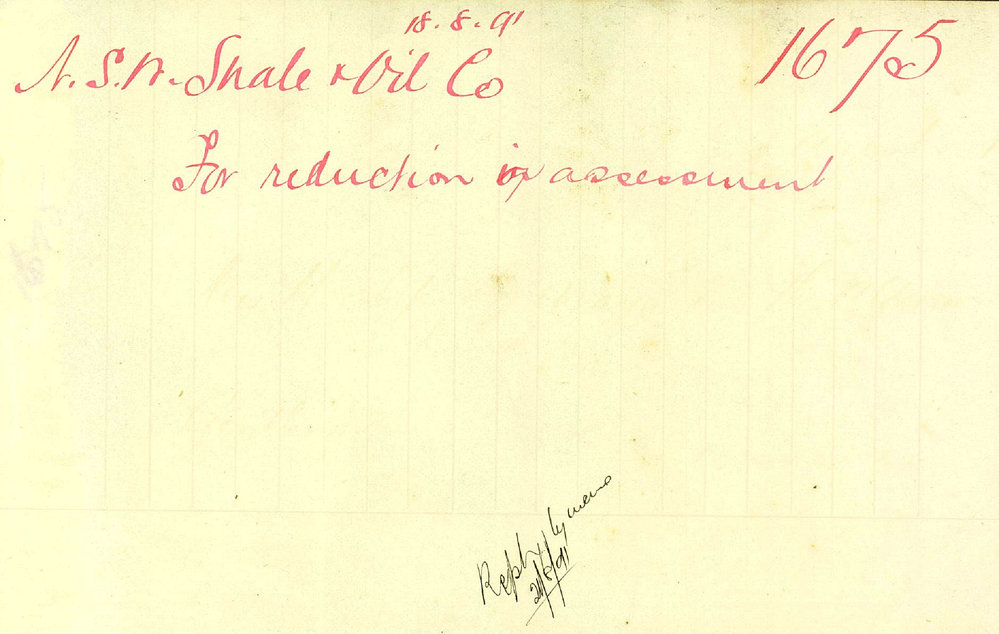 18.8.91
N.S.W. Shale & Oil Co
1675
For reduction in assessment
Reply
21/8/91